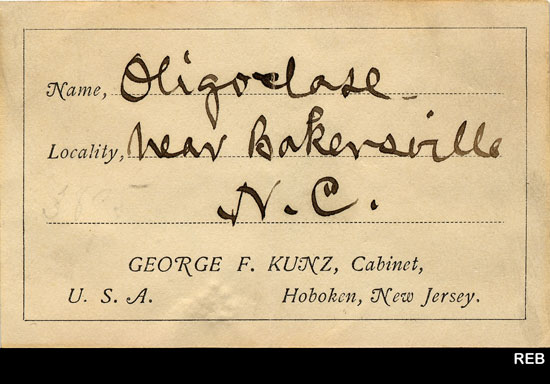 Name, Oligoclase
Locality, near Bakersville
N. C.
GEORGE F. KUNZ, Cabinet,
U. S. A. Hoboken, New Jersey.
REB